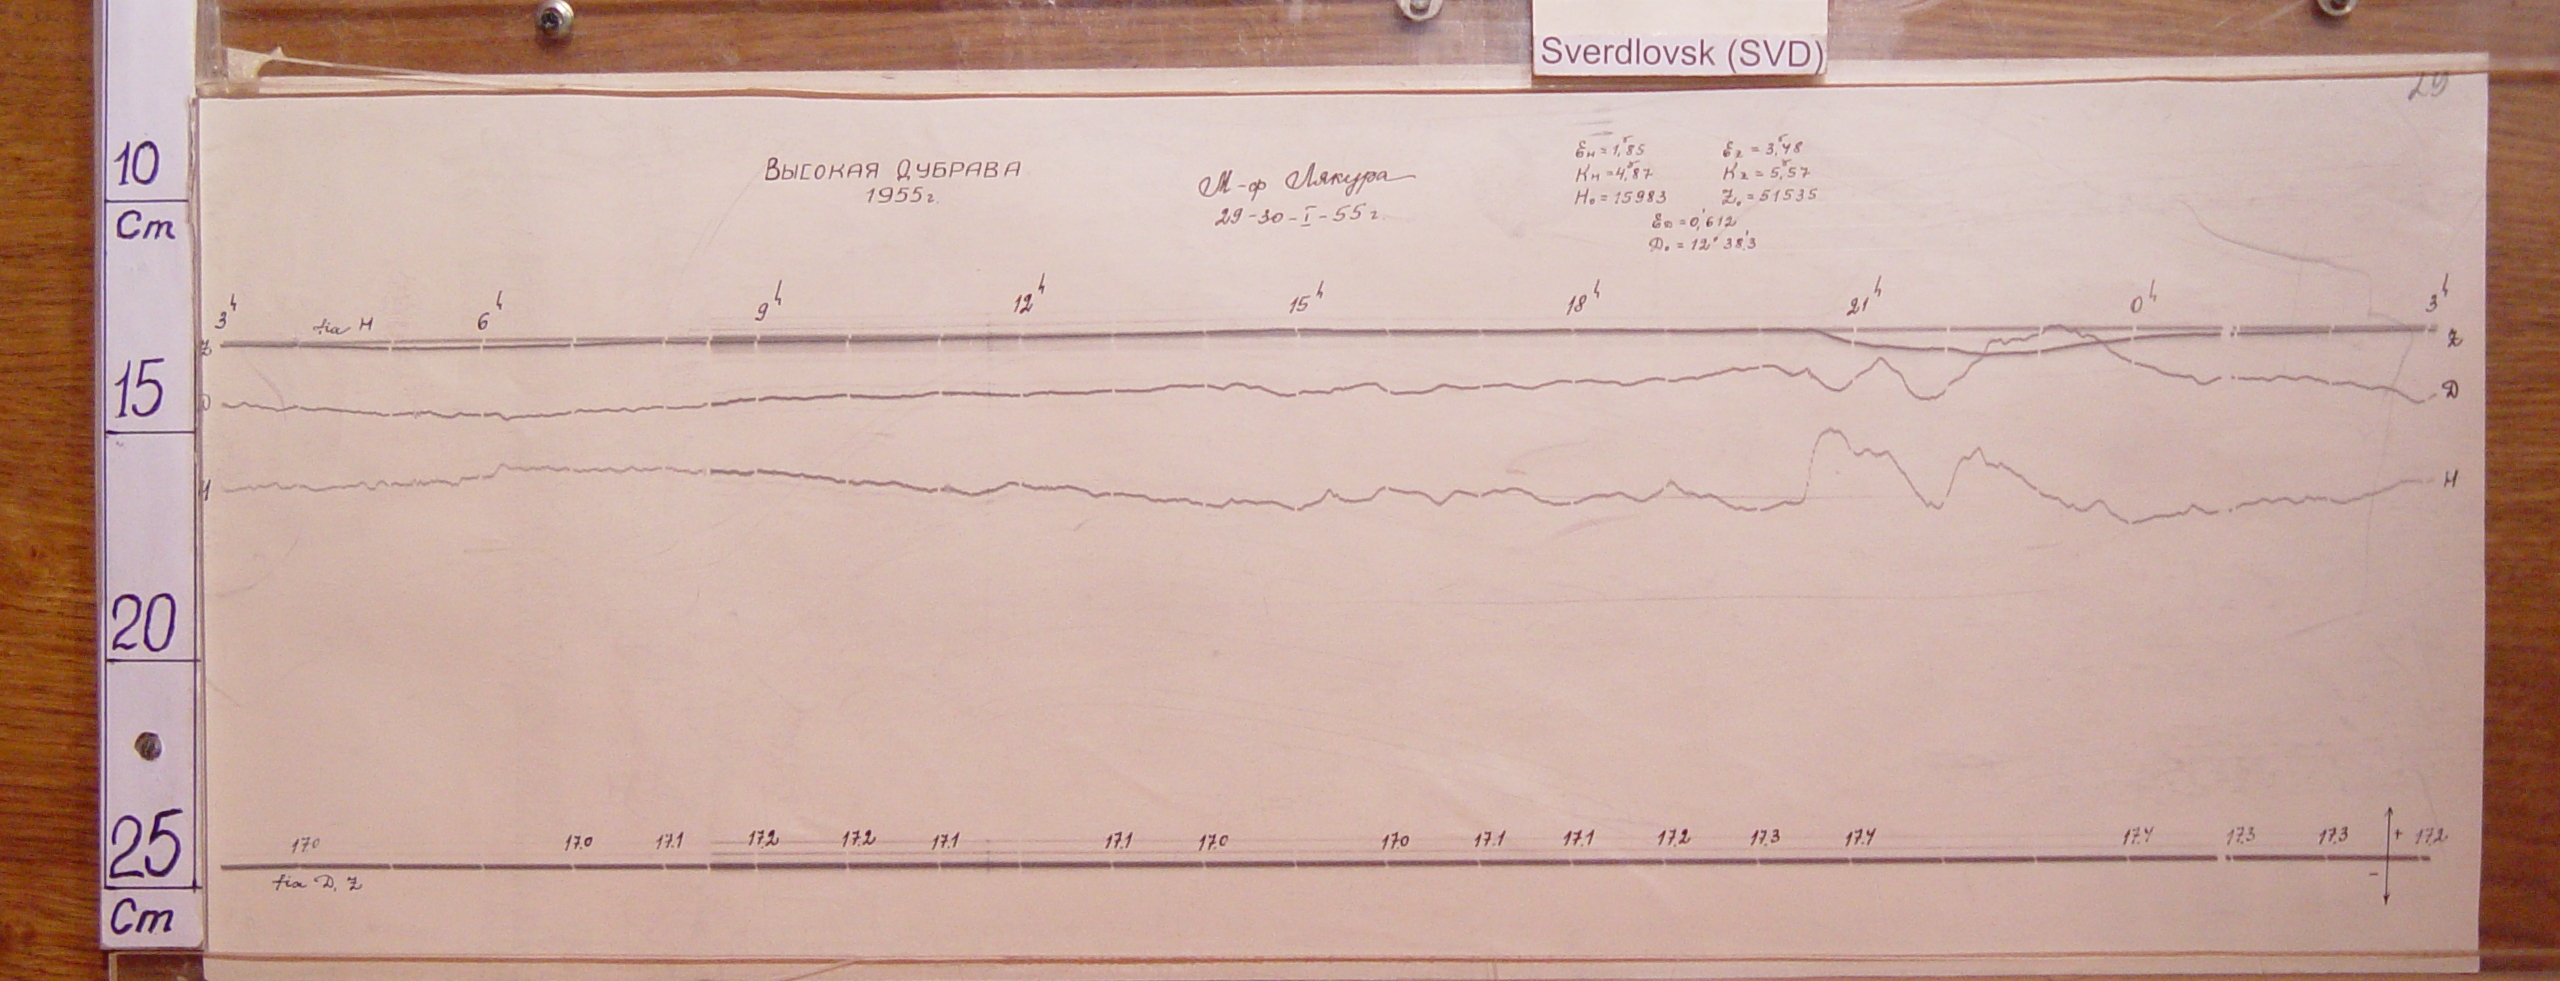 Sverdlovsk (SVD)
29
10
Cm
15
20
25
Cm
Высокая Дубрава
1955г.
М-ф Лякура
29-30-I-55г.
Ɛн=1,ᵞ85 Ɛz=3,ᵞ48
Kн=4,ᵞ87 Kz=5,ᵞ57
H₀=15983 Z₀=51535
ƐD=0,′612
D₀=12°38,′3
3h 6h 9h 12h 15h 18h 21h 0h 3h
fix H
Z Z
D D
H H
17.0 17.0 17.1 17.2 17.2 17.1 17.1 17.0 17.0 17.1 17.1 17.2 17.3 17.4 17.4 17.3 17.3 + 17.2
-
fix D, Z